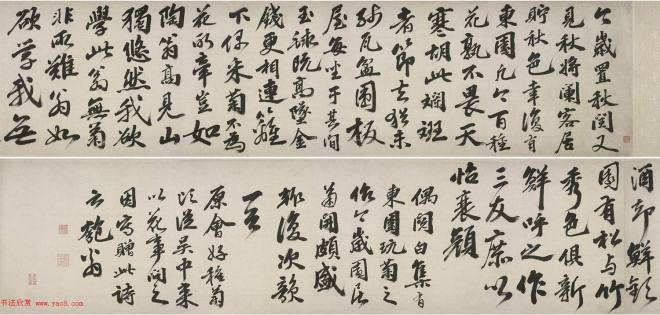 今歲置秋閏又
見秋將闌客居
貯秋色幸復有
東園凡今百種
花孰不畏天
寒胡此斕斑
者節去猶未
殘瓦盆圍板
屋每坐于其間
玉毬既高墜金
錢更相連籬
下俯朱菊不為
花所牽豈如
陶翁高見山
獨悠然我欲
學此翁無菊
非所難翁如
欲學我無
酒却鮮歡
園有松與竹
秀色俱新
鮮呼之作
三友庶以
怡衰顏
偶閱白集有
東園玩菊之
作今歲園居
菊開頗盛
輒復次韻
一首
原會好種菊
頃從吴中來
以花事問之
因寫贈此詩
云匏翁
书法欣赏 www.yac8.com